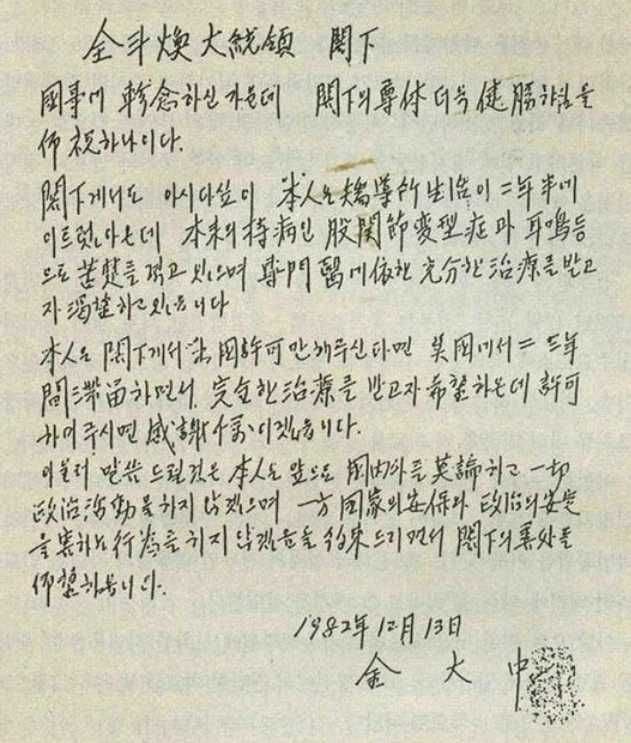 全斗煥大統領 閣下
國事에 軫念하신 가운데 閣下의 尊体 더욱 健勝하심을
仰祝하나이다.
閣下께서도 아시다싶이 本人은 矯導所 生活이 二年半에
이르렀아온데 本來의 持病인 股関節変型症과 耳鳴等
으로 苦楚를 격고 있으며 専門醫에 依한 充分한 治療를 받고
자 渴望하고 있읍니다
本人은 閣下께서 出國許可만 해주신다면 美國에서 二, 三年
間 滯留하면서 完全한 治療를 받고자 希望하온데 許可
하여 주시면 感謝千萬이겠읍니다.
아울러 말씀 드릴것은 本人은 앞으로 國内外를 莫論하고 一切
政治活動을 하지 않겠으며 一方 国家의 安保와 政治의 安定
을 害하는 行為를 하지 않겠음을 約束드리면서 閣下의 善処를
仰望하옵니다.
1982年 12月 13日
金 大 中